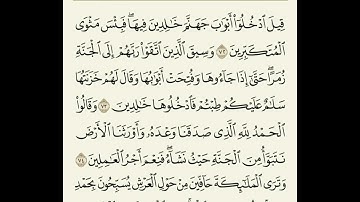 قِيلَ ٱدۡخُلُوٓاْ أَبۡوَٰبَ جَهَنَّمَ خَٰلِدِينَ فِيهَاۖ فَبِئۡسَ مَثۡوَى
ٱلۡمُتَكَبِّرِينَ ٧٢ وَسِيقَ ٱلَّذِينَ ٱتَّقَوۡاْ رَبَّهُمۡ إِلَى ٱلۡجَنَّةِ
زُمَرًاۖ حَتَّىٰٓ إِذَا جَآءُوهَا وَفُتِحَتۡ أَبۡوَٰبُهَا وَقَالَ لَهُمۡ خَزَنَتُهَا
سَلَٰمٌ عَلَيۡكُمۡ طِبۡتُمۡ فَٱدۡخُلُوهَا خَٰلِدِينَ ٧٣ وَقَالُواْ
ٱلۡحَمۡدُ لِلَّهِ ٱلَّذِي صَدَقَنَا وَعۡدَهُۥ وَأَوۡرَثَنَا ٱلۡأَرۡضَ
نَتَبَوَّأُ مِنَ ٱلۡجَنَّةِ حَيۡثُ نَشَآءُۖ فَنِعۡمَ أَجۡرُ ٱلۡعَٰمِلِينَ ٧٤
وَتَرَى ٱلۡمَلَٰٓئِكَةَ حَآفِّينَ مِنۡ حَوۡلِ ٱلۡعَرۡشِ يُسَبِّحُونَ بِحَمۡدِ